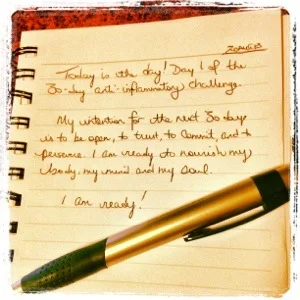 Today is the day! Day 1 of the
30-day anti-inflammatory challenge.
My intention for the next 30 days
is to be open, to trust, to commit, and to
persevere. I am ready to nourish my
body, my mind and my soul.
I am ready!